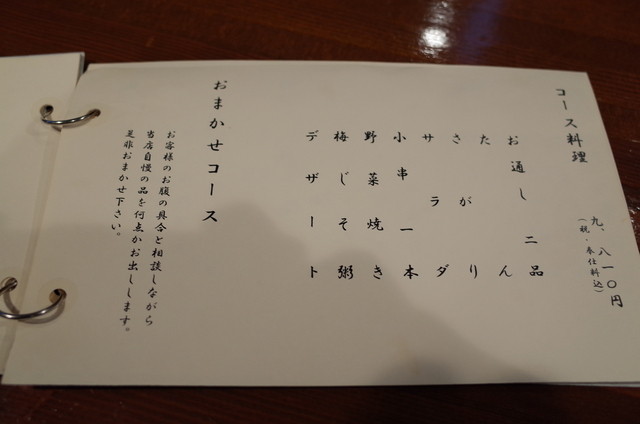 コース料理
九、八一〇円
（税・奉仕料込）
お通し二品
たん
さがり
サラダ
小串一本
野菜焼き
梅じそ粥
デザート
おまかせコース
お客様のお腹の具合と相談しながら
当店自慢の品を何点かお出しします。
是非おまかせ下さい。